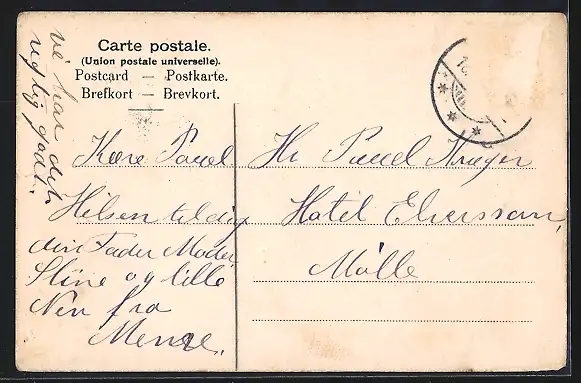 Carte postale.
(Union postale universelle).
Postcard — Postkarte.
Brefkort — Brevkort.
vi har det
rigtig godt.
Kære Poul
Hilsen til dig
din Fader Moder
Stine og lille
fra
Hr Poul Krüger
Hotel
Mölle